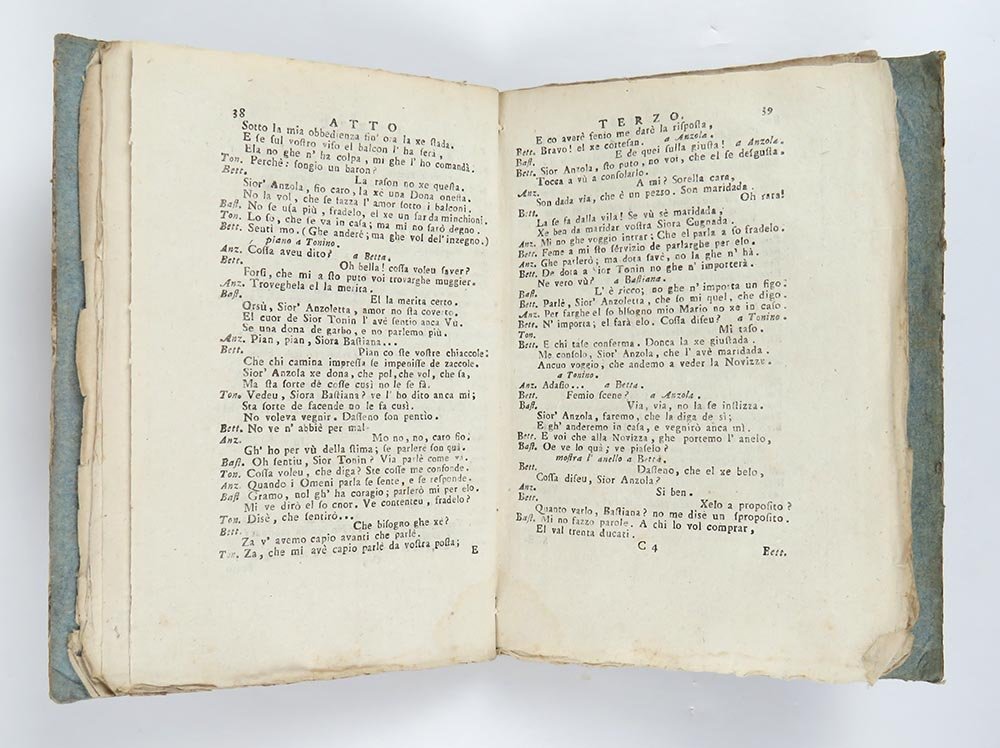 38
ATTO
Sotto la mia obbedienza fio' ora la xe stada.
E se sul vostro viso el balcon l' ha serà,
Ela no ghe n' ha colpa, mi ghe l' ho comandà.
Ton. Perchè: songio un baron?
Bett. La rason no xe questa.
Sior' Anzola, fio caro, la xè una Dona onesta.
No la vol, che se fazza l' amor sotto i balconi.
Bast. No se usa più, fradelo, el xe un far da minchioni.
Ton. Lo so, che se va in casa; ma mi no sarò degno.
Bett. Senti mo. (Ghe anderè; ma ghe vol dell'inzegno.)
piano a Tonino.
Anz. Cossa aveu dito? a Betta.
Bett. Oh bella! cossa voleu saver?
Forsi, che mi a sto puto voi trovarghe muggier.
Anz. Troveghela el la merita.
Bast. El la merita certo.
Orsù, Sior' Anzoletta, amor no sta coverto.
El cuor de Sior Tonin l' avè sentio anca Vu.
Se una dona de garbo, e no parlemo più.
Anz. Pian, pian, Siora Bastiana...
Bett. Pian co ste vostre chiaccole:
Che chi camina impressa se impenisse de zaccole.
Sior' Anzola xe dona, che pol, che vol, che sa,
Ma sta sorte dè cosse cusì no le se fà.
Ton. Vedeu, Siora Bastiana? ve l' ho dito anca mi;
Sta sorte de facende no le fa cusì.
No voleva vegnir. Dasseno son pentìo.
Bett. No ve n' abbiè per mal.
Anz. Mo no, no, caro fio.
Gh' ho per vù della stima; se parlere son quà.
Bast. Oh sentiu, Sior Tonin? Via parlè come va.
Ton. Cossa voleu, che diga? Ste cosse me confonde.
Anz. Quando i Omeni parla se sente, e se responde.
Bast Gramo, nol gh' ha coragio; parlerò mi per elo.
Mi ve dirò el so cuor. Ve contenteu, fradelo?
Ton. Disè, che sentirò...
Bett. Che bisogno ghe xè?
Za v' avemo capio avanti che parlè.
Ton. Za, che mi avè capio parlè da vostra posta;
E
TERZO.
39
E co averè senio me darè la risposta,
Bett. Bravo! el xe cortesan. a Anzola.
Bast. E de quei sulla giusta! a Anzola.
Bett. Sior Anzola, sto puto, no voi, che el se desgusta.
Tocca a vù a consolarlo.
Anz. A mi? Sorella cara,
Son dada via, che è un pezzo. Son maridada.
Bett. Oh rara!
La se fa dalla vila! Se vù sè maridada,
Xe ben da maridar vostra Siora Cugnada.
Anz. Mi no ghe voggio intrar: Che el parla a so fradelo.
Bett. Feme a mi sto servizio de parlarghe per elo.
Anz. Ghe parlerò; ma dota savè, no la ghe n' hà.
Bett. De dota a Sior Tonin no ghe n' importerà.
Ne vero vù? a Bastiana.
Bast. L' è ricco; no ghe n' importa un figo:
Bett. Parlè, Sior' Anzoletta, che so mi quel, che digo.
Anz. Per farghe el so bisogno mio Mario no xe in caso.
Bett. N' importa; el farà elo. Cossa diseu? a Tonino.
Ton. Mi taso.
Bett. E chi tase conferma. Donca la xe giustada.
Me consolo, Sior' Anzola, che l' avè maridada.
Ancuo voggio, che andemo a veder la Novizza
a Tonino.
Anz. Adasio... a Betta.
Bett. Femio scene? a Anzola.
Bast. Via, via, no la se instizza.
Sior' Anzola, faremo, che la diga de sì;
E gh' anderemo in casa, e vegnirò anca mì.
Bett. E voi che alla Novizza, ghe portemo l' anelo,
Bast. Oe ve lo quà; ve piaselo?
mostra l' anello a Betta.
Bett. Dasseno, che el xe belo,
Cossa diseu, Sior Anzola?
Anz. Si ben.
Bett. Xelo a proposito?
Quanto varlo, Bastiana? no me disè un sproposito.
Bast. Mi no fazzo parole. A chi lo vol comprar,
El val trenta ducati.
C 4
Bett.